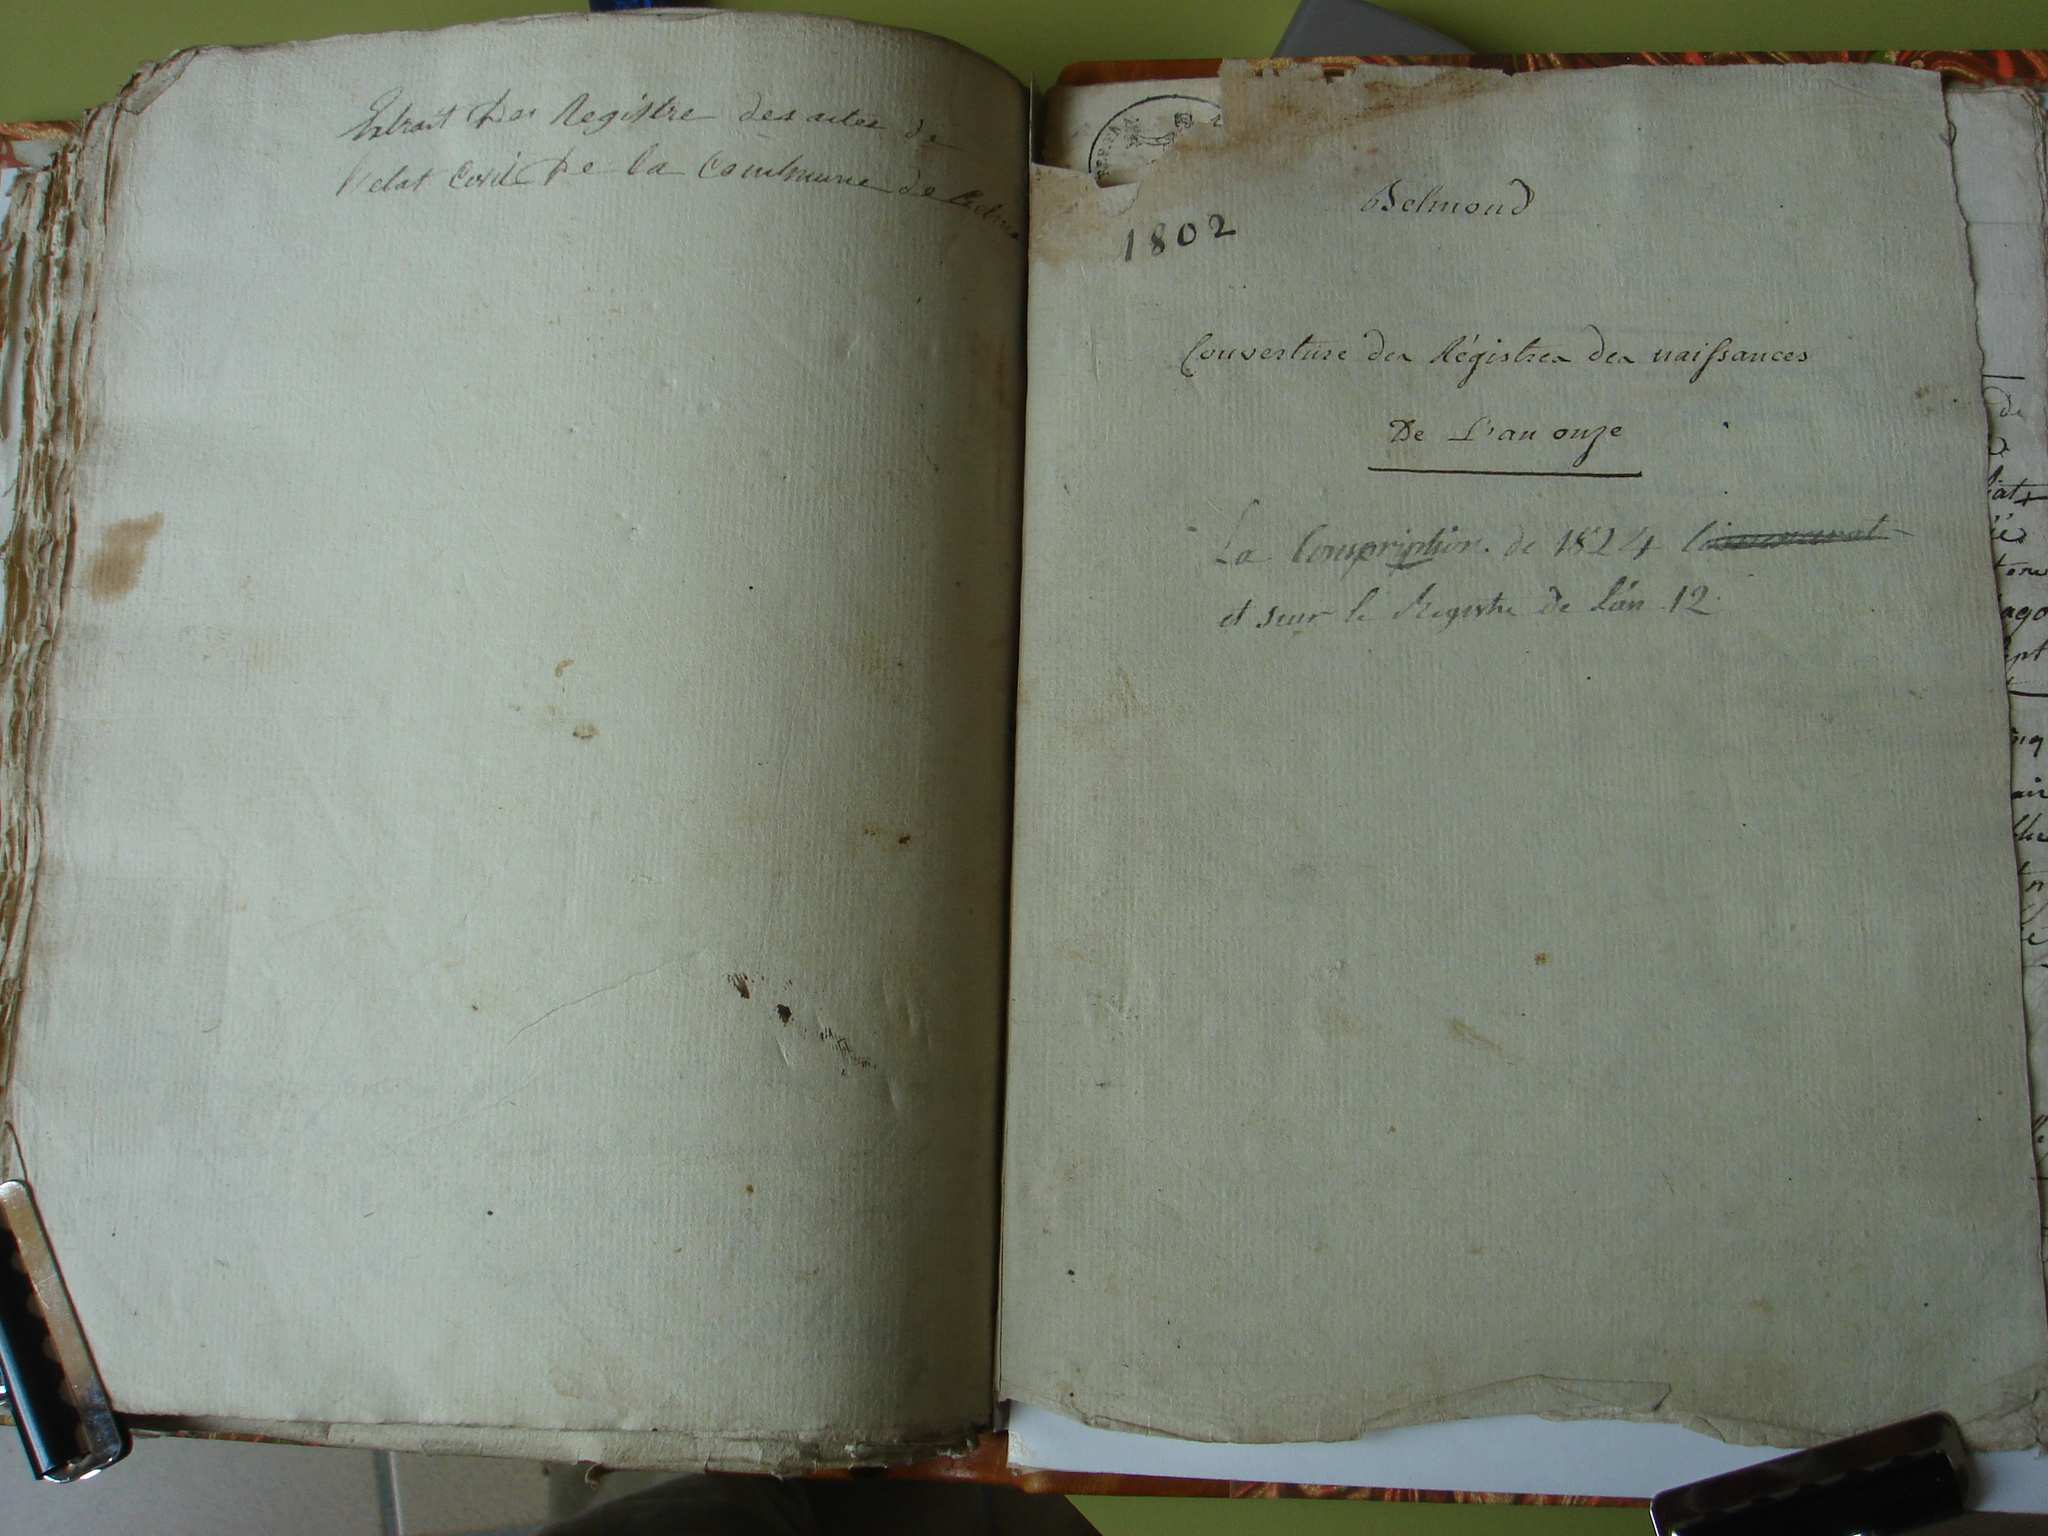 Extrait Des Registre des actes de
l'etat Civil De la Commune de Belmo
1802
Belmond
Couverture des Régistres des naissances
De L'an onze
La Conscription de 1824
et sur le Registre de l'an 12